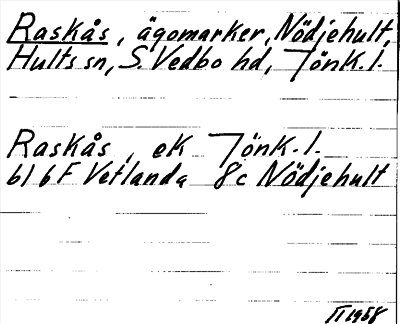 Raskås, ägomarker, Nödjehult,
Hults sn, S. Vedbo hd, Jönk. l.
Raskås, ek Jönk. l.
6I 6F Vetlanda 8c Nödjehult
II 1958